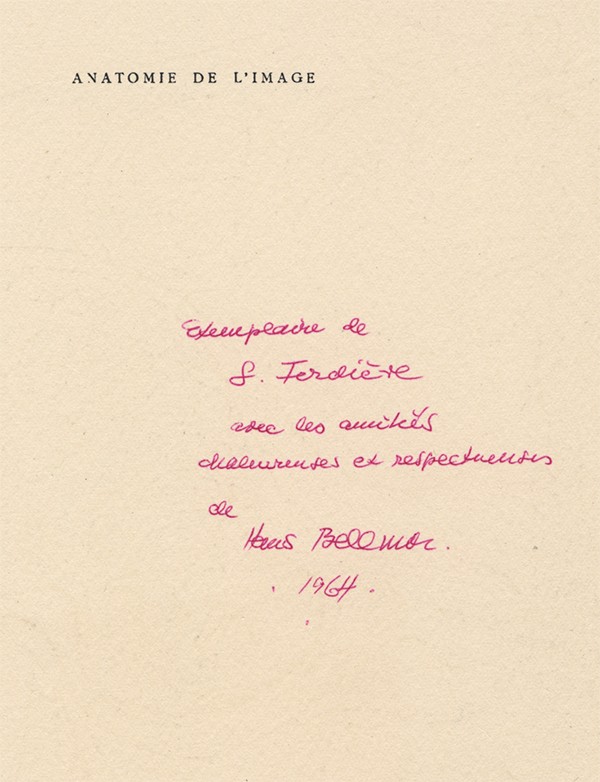 ANATOMIE DE L'IMAGE
Exemplaire de
G. Ferdière
avec les amitiés
chaleureuses et respectueuses
de
Hans Bellmer.
. 1964 .